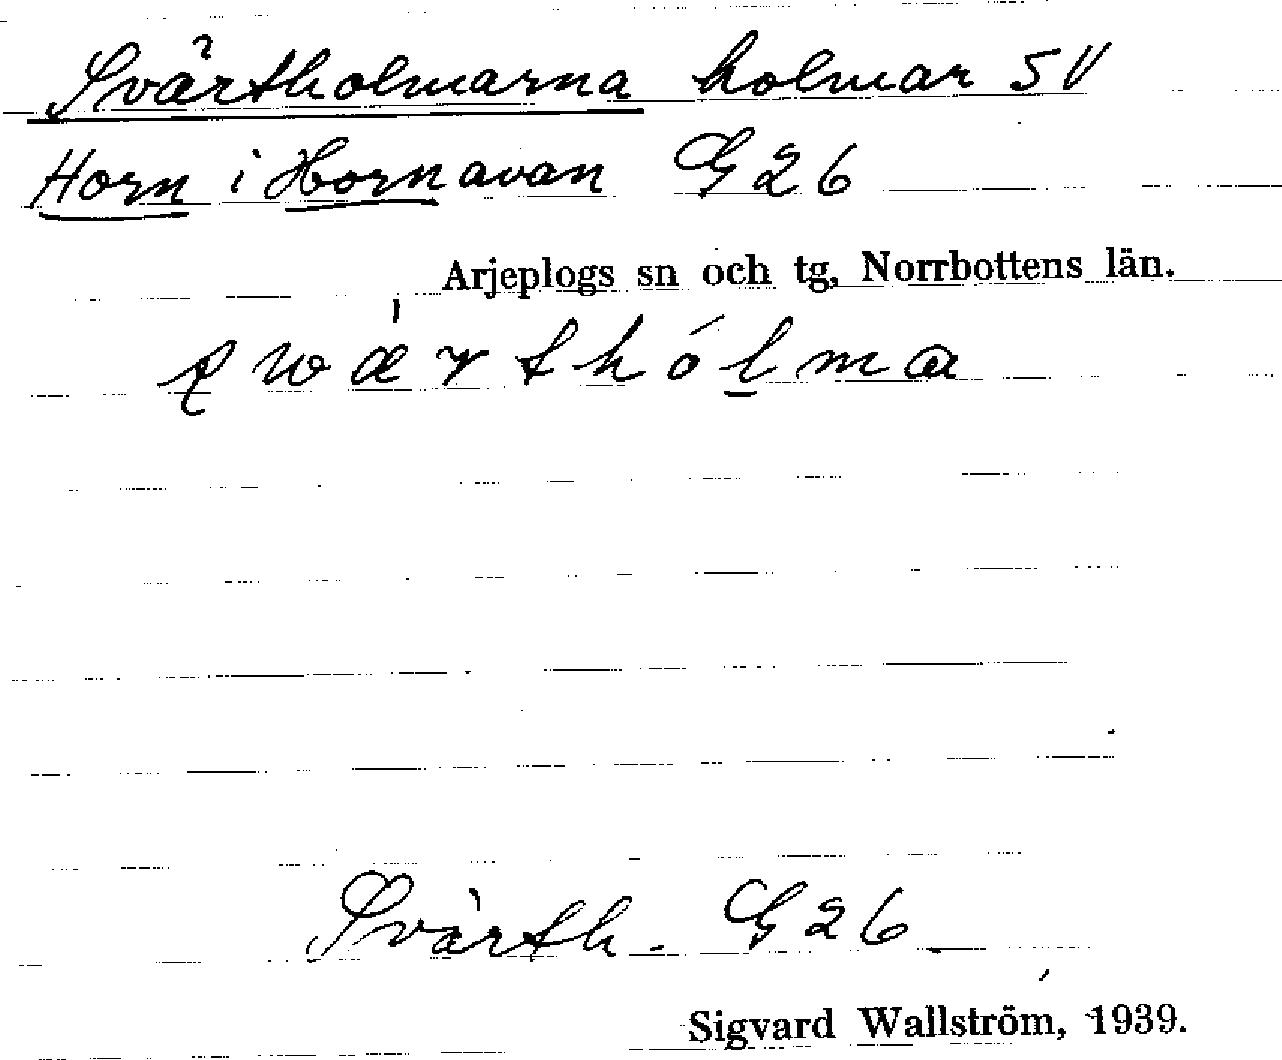 Svärtholmarna holmar SV
Horn i Hornavan G 26
Arjeplogs sn och tg, Norrbottens län.
Svärth. G 26
Sigvard Wallström, 1939.